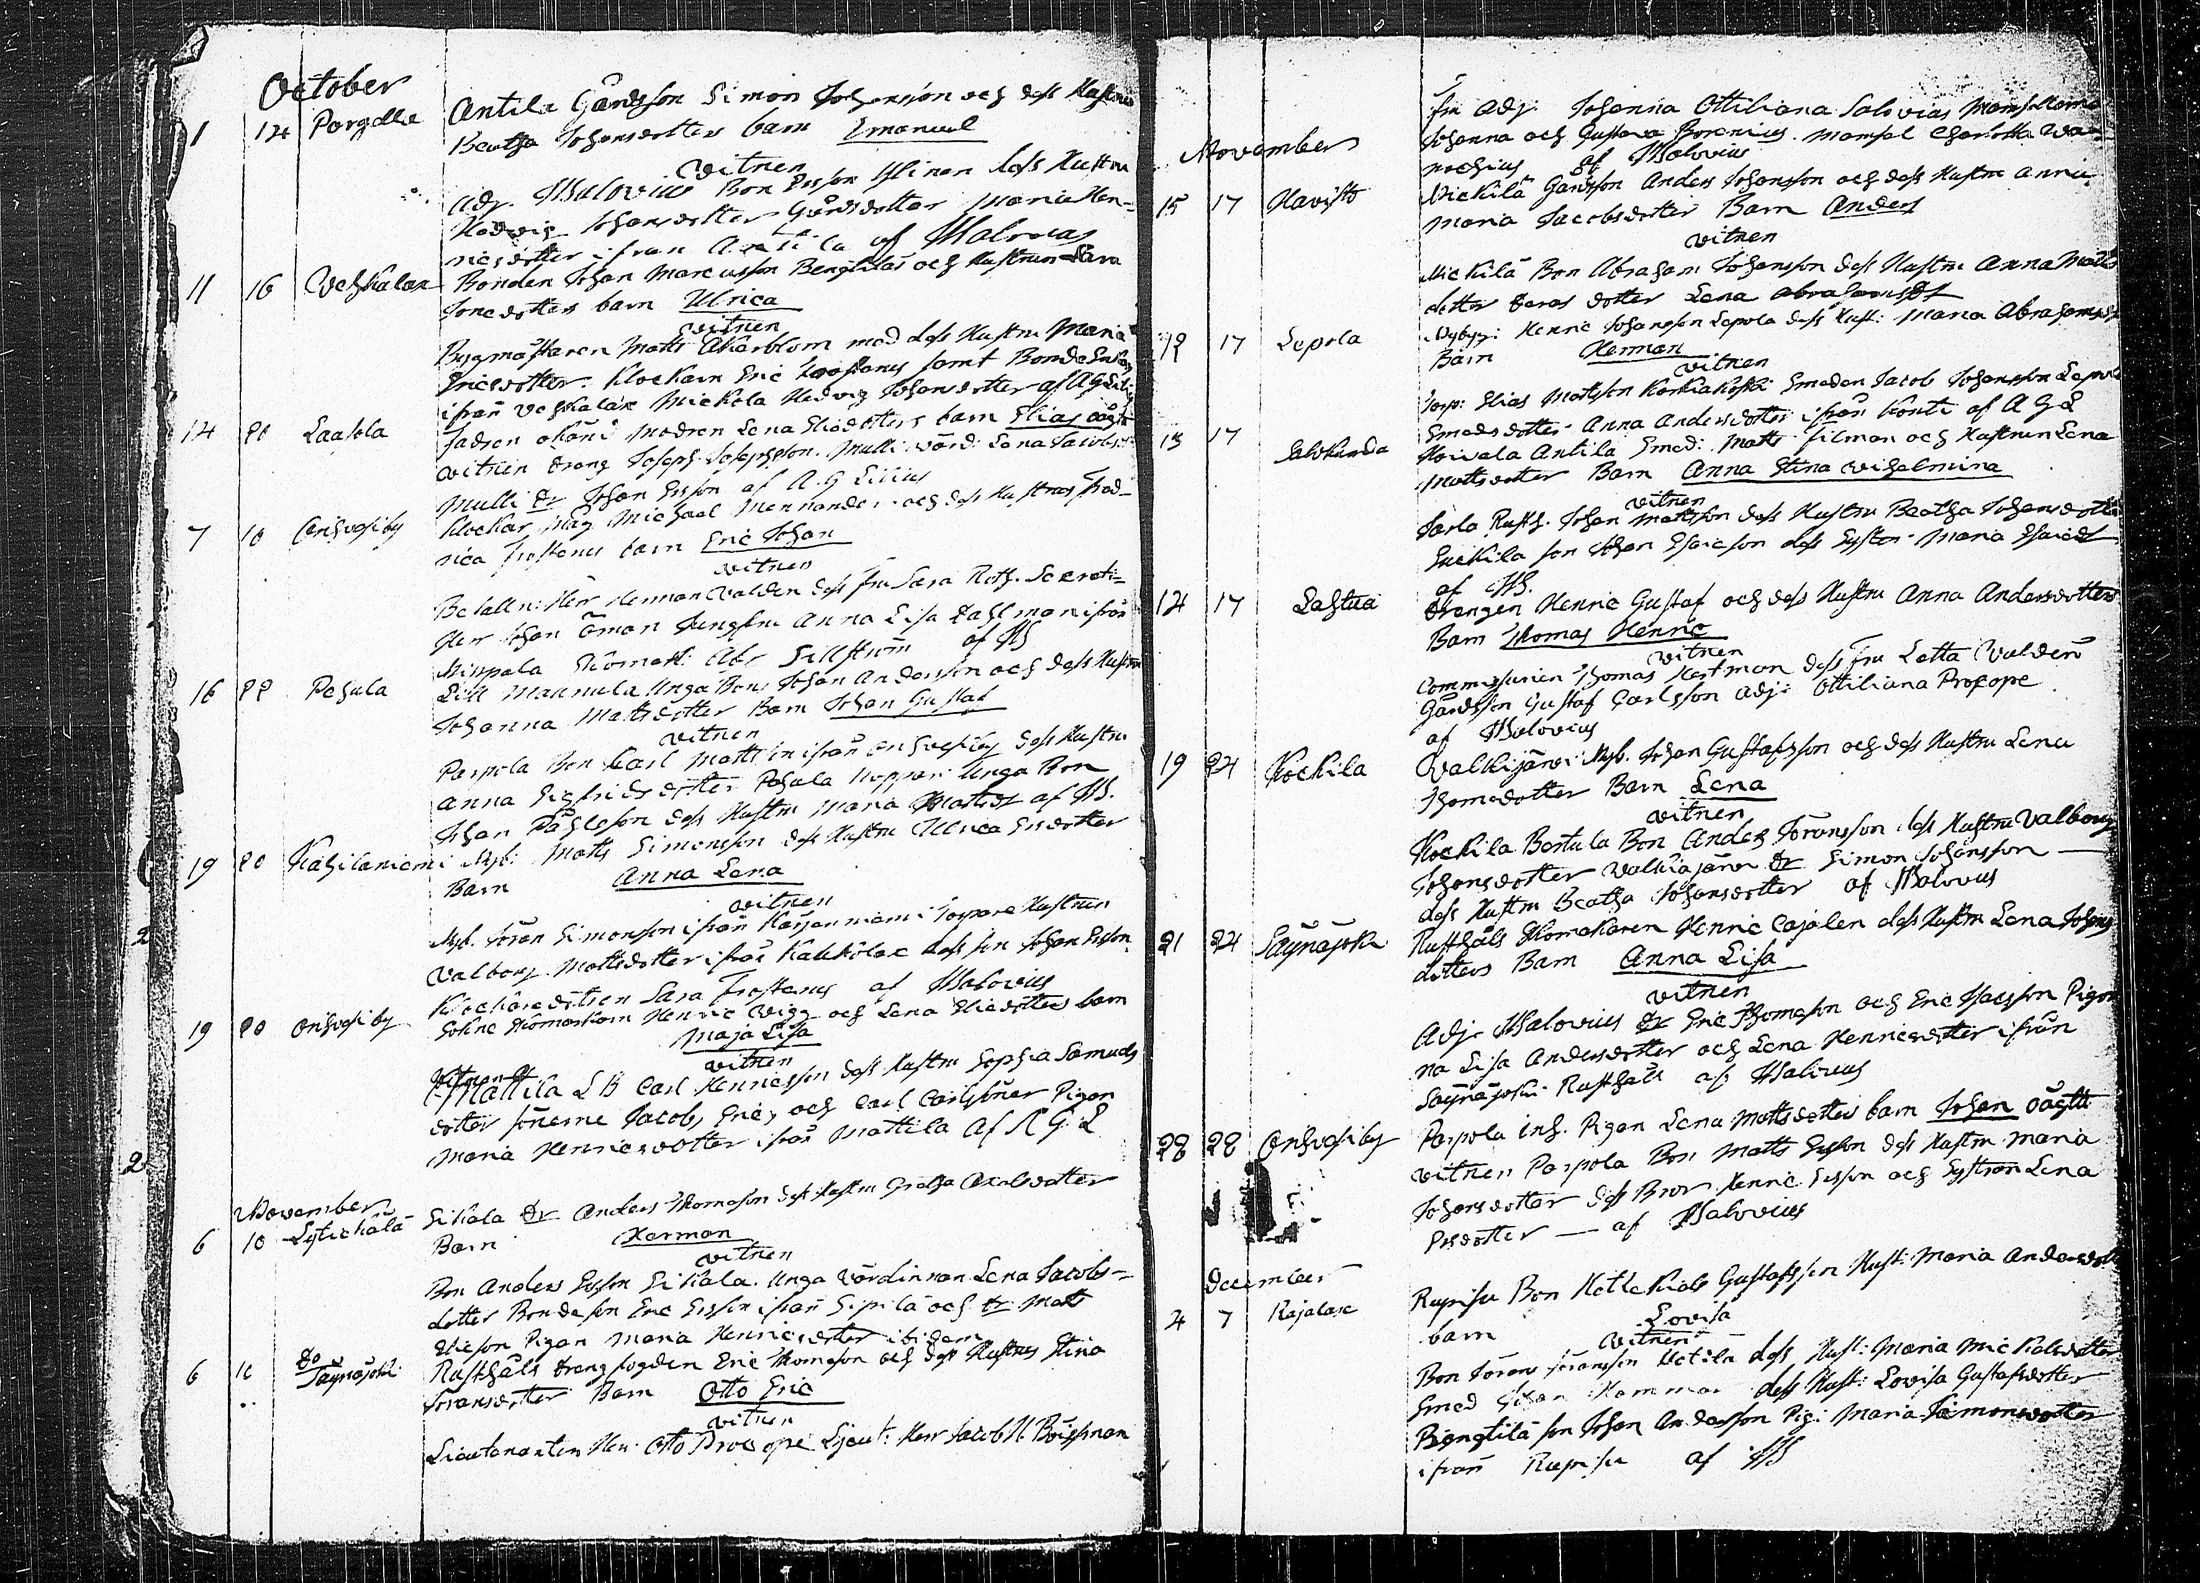 October
1 14 Porgolla Antila Gårdsson Simon Johansson och dess Hustru
Beatha Johansdotters barn Emanuel
vitnen
Adj. HSalovius Bon Ersson dess Hustru
Hedvig Johansdotter Gårdsdotter Maria Hen=
ricsdotter ifrån Antila af HSalovius
11 16 Vehkalax Bonden Johan Marcusson Bengtilas och Hustrun Sara
barn Ulrica
vitnen
Bygmästaren Matts Åkerblom med dess Hustru Maria
Ericsdotter. Klockarn Eric samt Bonde
ifrån Vehkalax Mickola Hedvig Johansdotter af AG
14 20 Laasola fadren okänd modren Lena Eliædotters barn Elias oägta
vitnen dräng Joseph Josephsson. Mulli värd: Lena Jacobs
Mulli dr Johan Ersson af A.G Lilius
7 10 Onhvesiby Klockar Måg Michael Mennander och dess Hustrus Fred=
rica barn Eric Johan
vitnen
Befalln: Herr Herman Valden dess fru Sara Roth. Secreti=
Herr Johan Öman Jungfru Anna Lisa Dahlman ifrån
Skomak: Abr Sellström af HS
16 22 Pesula Mannula Unga Bon Johan Andersson och dess Hustru
Johanna Mattsdotter Barn Johan Gustaf
vitnen
Parpola Bon Carl Mattson ifrån Onhvesiby dess Hustru
Anna Sigfridsdotter Pesula Unga Bon
Johan Påhlsson dess Hustru Maria Mattsdr af HS.
19 20 Kahilaniemi Nyb: Matts Simonsson dess Hustru Ulrica Ersdotter
Barn Anna Lena
vitnen
Nyb. Jöran Simonsson ifrån Karjanniemi Torpare Hustrun
Valborg Mattsdotter ifrån dess son Johan Ersson
Klockaredottren Sara af HSalovius
19 20 Onhvesiby Sokne Skomakarn Henric Vigg och Lena Eliædotters barn
Maja Lisa
vitnen
Mattila LB Carl Henricsson dess Hustru Sophia Samuels
dotter sönerne Jacob, Eric, och Carl Carlsöner Pigan
Maria Henricsdotter ifrån Mattila Af A G L
November
6 10 Lytickälä Sikala dr Anders Thomasson dess Hustru Gretha Axelsdotter
Barn Herman
vitnen
Bon Anders Ersson Sikala. Unga värdinnan Lena Jacobs=
dotter Bondeson Eric Ersson ifrån Sipilä och dr Matts
Eliesson Pigan Maria Henricsdotter ibidem
6 10 Säynäjoki Rusthåls Drengfogden Eric Thomasson och dess Hustrus Stina
Göransdotter Barn Otto Eric
vitnen
Lieutenanten Herr Otto Procopé Lieut: Herr Jacob H Böisman
fru Adj. Johanna Ottiliana Salovius Mamsellerna
Johanna och Gustava Borenius. Mamsel Charlotta
November af HSalovius
15 17 Havisto Mickilä Gårdsson Anders Johansson och dess Hustru Anna
Maria Jacobsdotter Barn Anders
vitnen
Mickilä Bon Abraham Johansson dess Hustru Anna Matts
dotter deras dotter Lena Abrahamsdr
12 17 Lepola Nybygg: Henric Johansson Lepola dess Hust: Maria Abrahamsdr
Barn Herman
vitnen
Torp: Elias Mattsson Korkiakoski Smeden Jacob Johansson Lepola
Smedsdotter Anna Andersdotter ifrån Konti af A G L
13 17 Salokunda Antila Smed: Matts Silman och Hustrun Lena
Mattsdotter Barn Anna Stina Vilhelmina
vitnen
Jarla Rusth. Johan Mattsson dess Hustru Beatha Johansdotter
son Johan Esaiesson dess Syster Maria Esaiædr
af HS.
14 17 Lahtua Drengen Henric Gustaf och dess Hustru Anna Andersdotters
Barn Thomas Henric
vitnen
Commissarien Thomas Hertman dess fru Lotta Valden
Gårdsson Gustaf Carlsson Adj: Ottiliana Procopé
af HSalovius
19 24 Kockila Valkijärvi Nyb. Johan Gustafsson och dess Hustru Lena
Thomædotter Barn Lena
vitnen
Kockila Bertula Bon Anders Göransson dess Hustru Valborg
Johansdotter Valkiajärvi dr Simon Johansson
dess Hustru Beatha Johansdotter af HSalovius
21 24 Säynäjoki Rusthåls Skomakaren Henric Cajalen dess Hustru Lena Johans
dotters Barn Anna Lisa
vitnen
Adj. HSalovius dr Eric Thomasson och Eric Isacsson Pigor
na Lisa Andersdotter och Lena Henricsdotter ifrån
Säynäjoki Rusthåll af HSalovius
22 28 Onhvesiby Parpola inh. Pigan Lena Mattsdotters barn Johan oägta
vitnen Parpola Bon Matts Ersson dess Hustru Maria
Johansdotter dess Bror Henric Ersson och Systran Lena
Ersdotter — af HSalovius
December
4 7 Rajalax Rupisu Bon Gustafsson Hust: Maria Andersdotter
barn Lovisa
vitnen
Bon Göran Göransson Uotila dess Hust: Maria Mickelsdotter
Smed Johan Hammar dess Hust: Lovisa Gustafsdotter
Bengtilä son Johan Andersson Pig: Maria Simonsdotter
ifrån Rupisu af HS